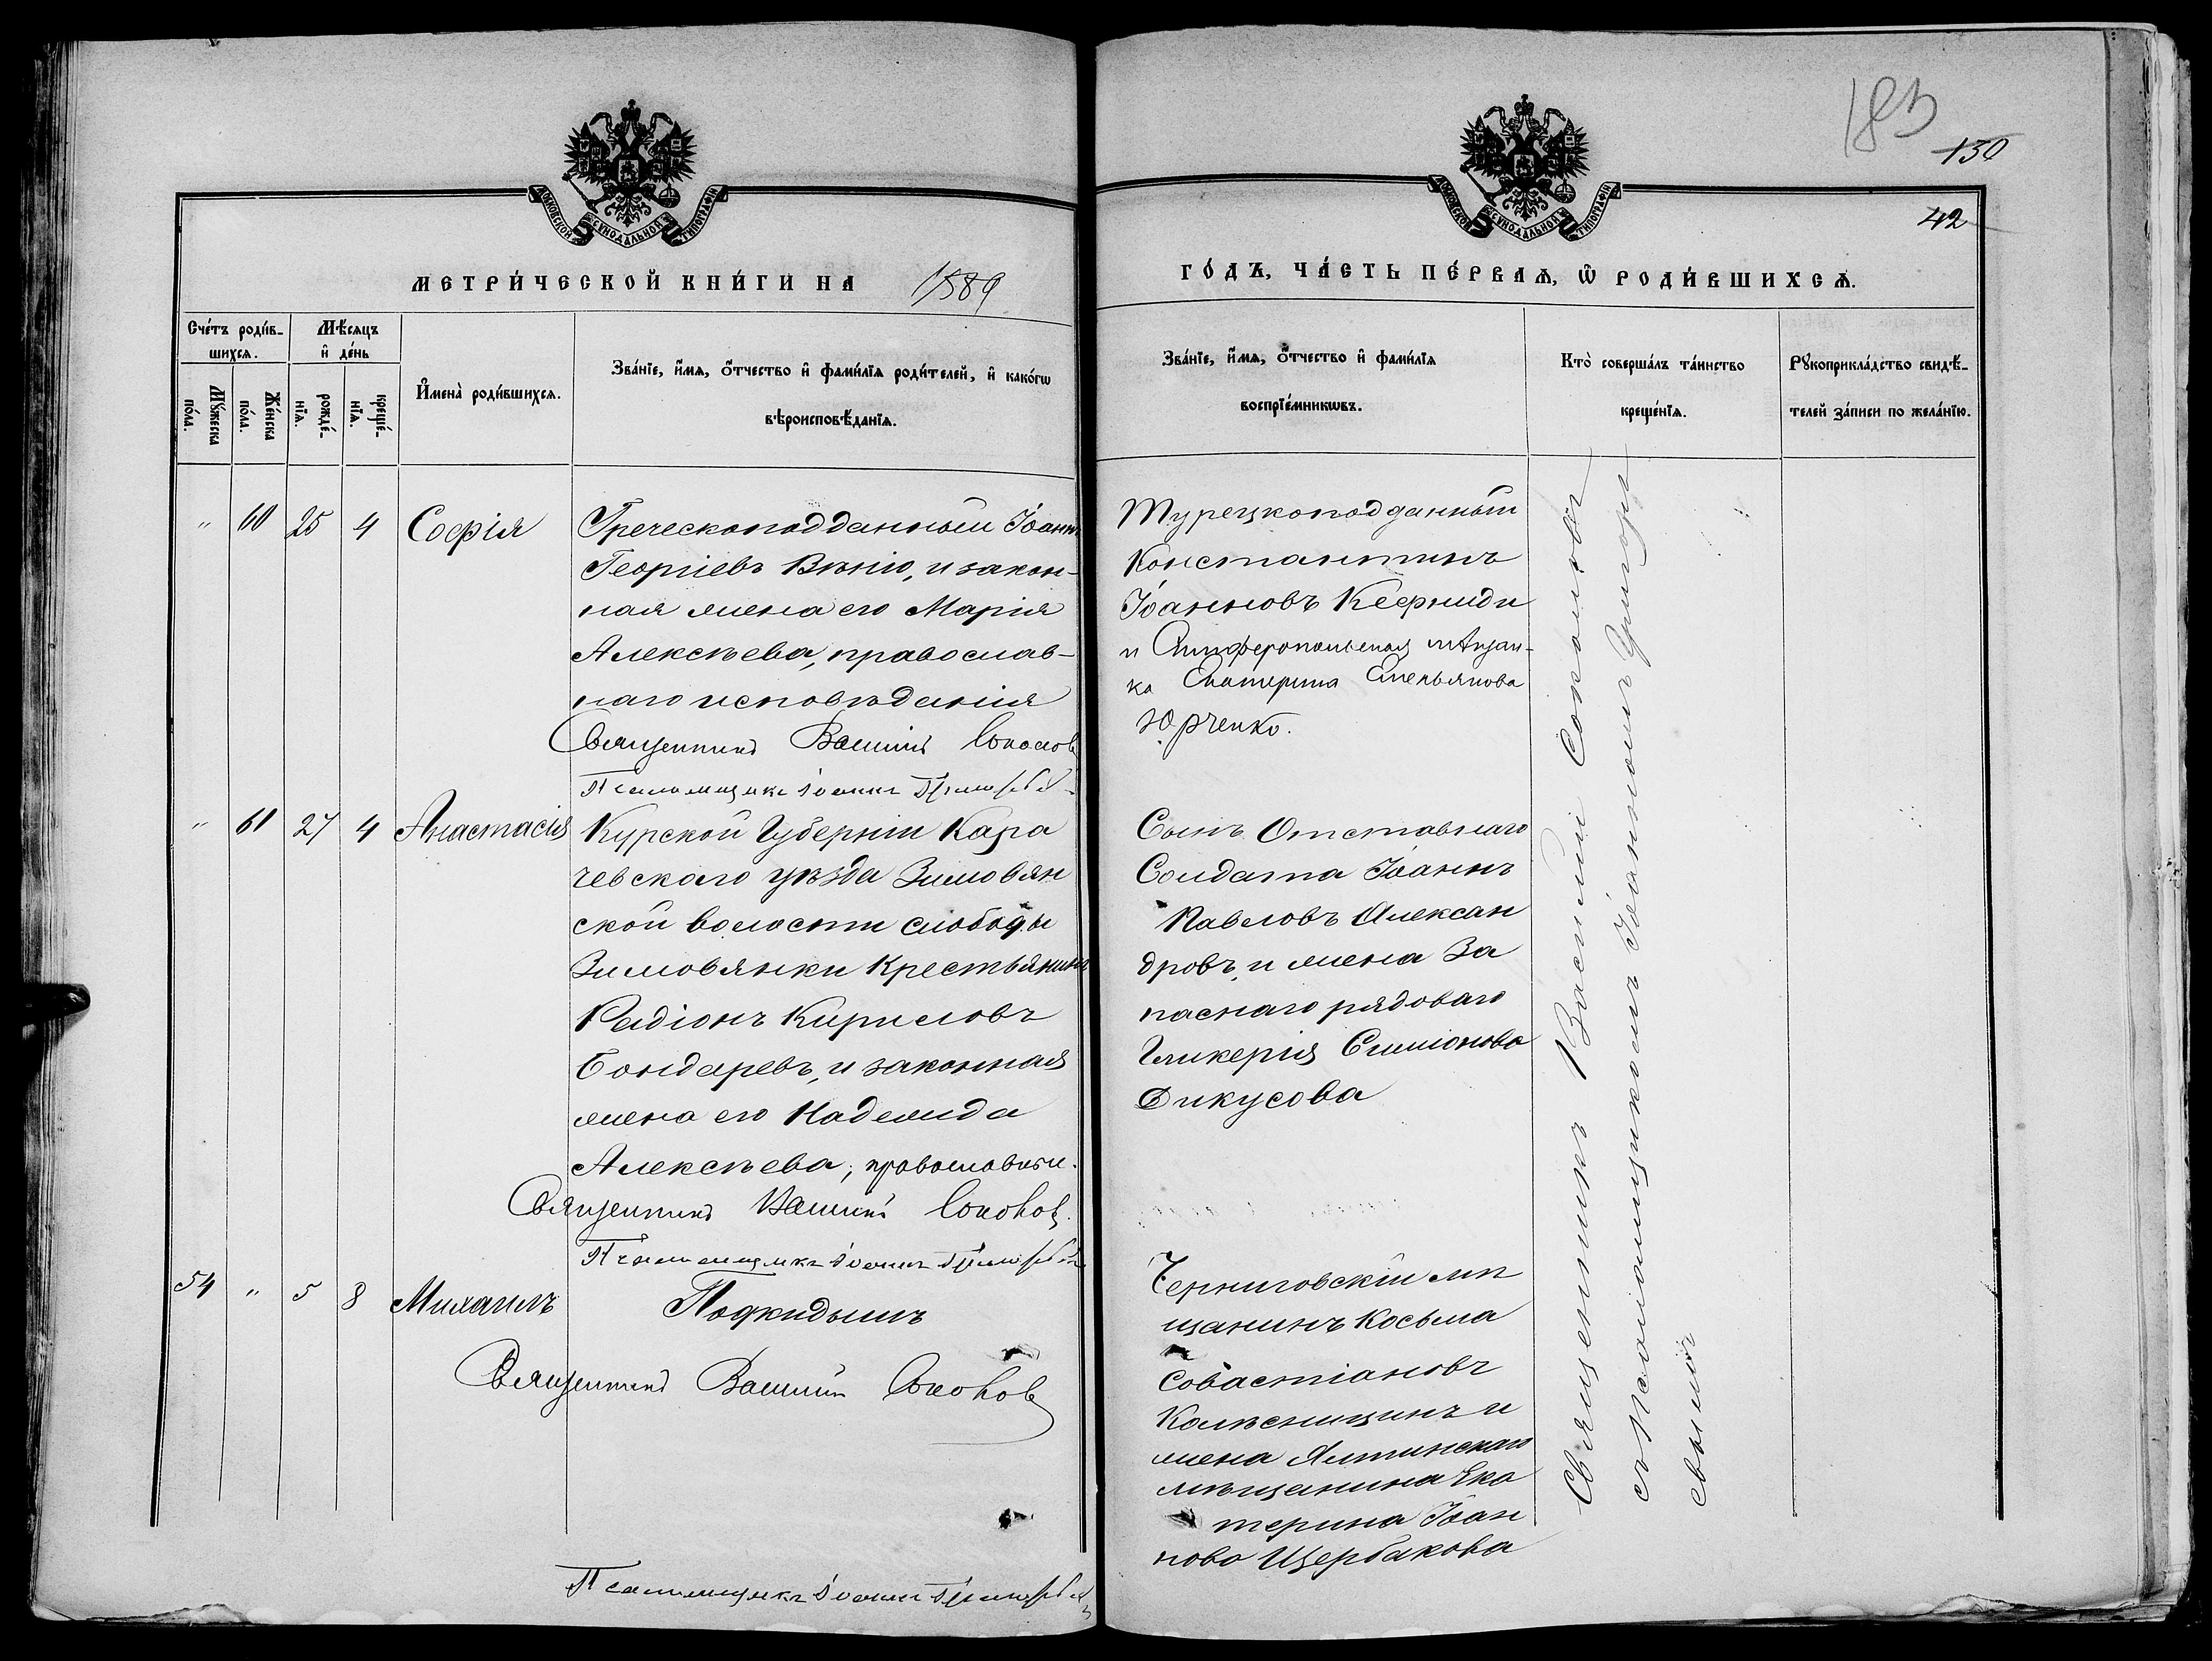 183
130
42
МОСКОВСКОЙ СѴНОДАЛЬНОЙ ТИПОГРАФІИ
МЕТРИ́ЧЕСКОЙ КНИ́ГИ НА 1889
МОСКОВСКОЙ СѴНОДАЛЬНОЙ ТИПОГРАФІИ
ГО́ДЪ, ЧА́СТЬ ПЕ́РВАѦ, Ѡ҆ РОДИ́ВШИХСѦ.
Сче́тъ роди́в-
шихсѧ.
Мꙋ́жеска по́ла.
Же́нска по́ла.
Мѣ́сѧцъ
и҆ де́нь
рожде́-
нїѧ.
креще́-
нїѧ.
И҆мена̀ роди́вшихсѧ.
Зва́нїе, и҆́мѧ, ѻ҆́тчество и҆ фами́лїѧ роди́телей, и҆ како́гѡ
вѣроисповѣ́данїѧ.
Зва́нїе, и҆́мѧ, ѻ҆́тчество и҆ фами́лїѧ
воспрїе́мникѡвъ.
Кто̀ соверша́лъ та́инство
креще́нїѧ.
Рꙋкоприкла́дство свидѣ́-
телей за́писи по жела́нїю.
" 60 25 4 Софія
Греческоподданный Іоаннъ
Георгіевъ и закон-
ная жена его Марія
Алексѣева, православ-
наго исповѣданія
Священникъ Василій Соколовъ
Псаломщикъ Іоаннъ
Турецкоподданный
Константинъ
Іоанновъ Кефниди
и Симферопольская мѣщан-
ка Екатерина Емельянова
Юрченко.
" 61 27 4 Анастасія
Курской Губерніи Кара
чевскаго уѣзда Зимовян
ской волости слободы
Зимовянки Крестьянинъ
Радіонъ Кириловъ
Бондаревъ, и законная
жена его Надежда
Алексѣева, православные.
Священникъ Василій Соколовъ
Псаломщикъ Іоаннъ
Сынъ Отставнаго
Солдата Іоаннъ
Павловъ Алексан
дровъ, и жена За
паснаго рядоваго
Гликерія Симіонова
Дикусова
54 " 5 8 Михаилъ
Подкидышъ
Священникъ Василій Соколовъ
Псаломщикъ Іоаннъ
Черниговскій мѣ
щанинъ Косьма
Совастіановъ
Колѣсницинъ и
жена Ялтинскаго
мѣщанина Ека
терина Іоан
нова Щербакова
Священникъ Василій Соколовъ
съ Псаломщикомъ Іоанномъ Григорь
евымъ